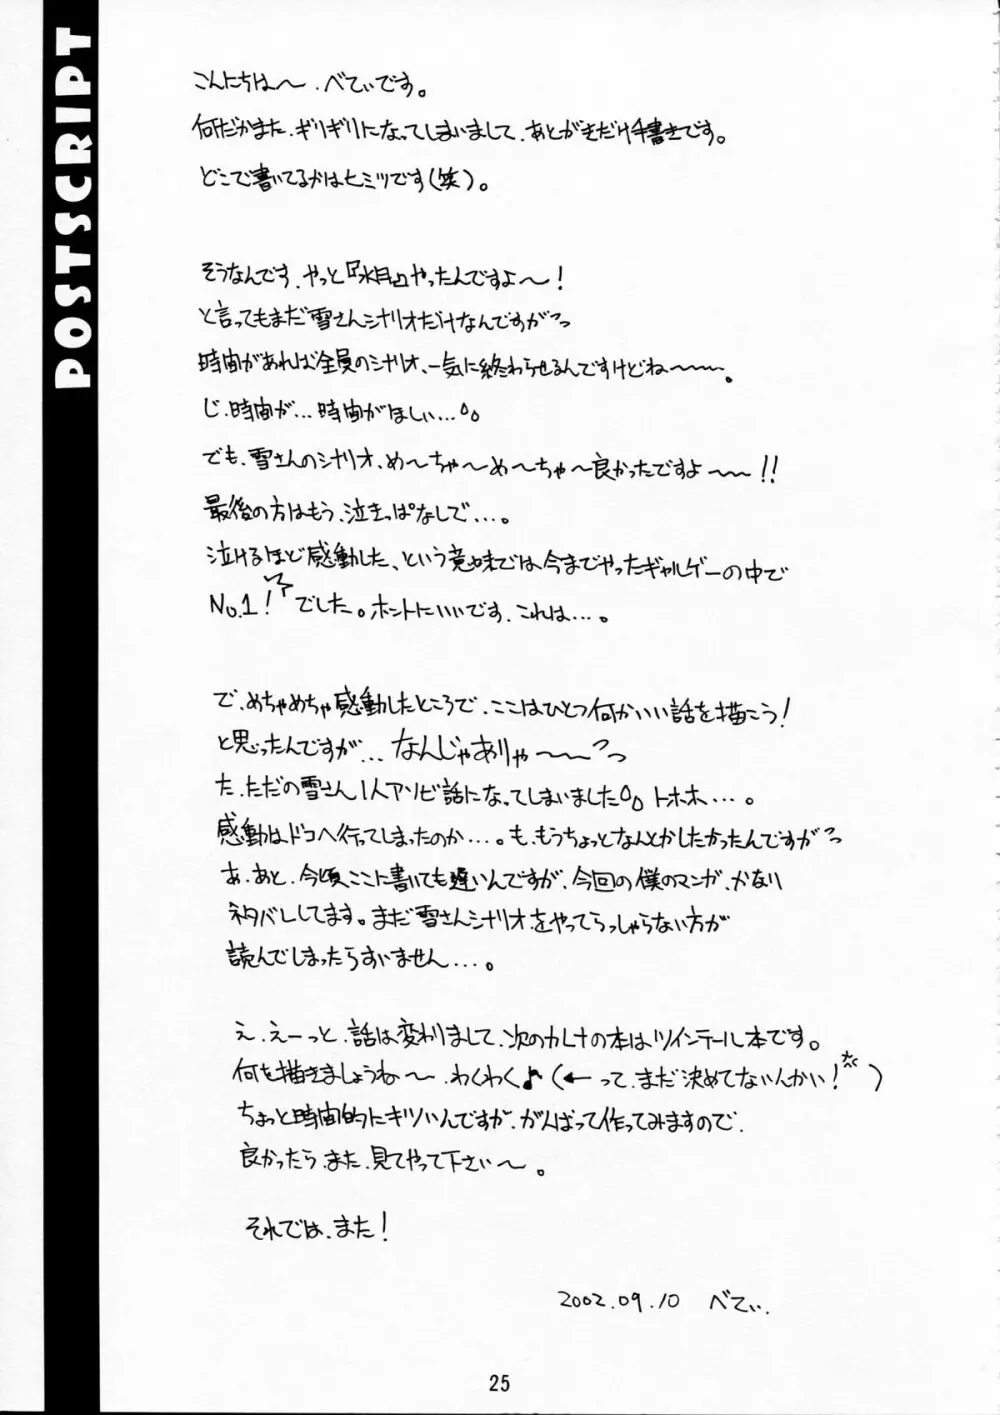 POSTSCRIPT
こんにちは〜、べてぃです。
何だかまた、ギリギリになってしまいまして、あとがきだけ手書きです。
どこで書いてるかはヒミツです(笑)。
そうなんです、やっと『水月』やったんですよ〜!
と言ってもまだ雪さんシナリオだけなんですがっ
時間があれば全員のシナリオ、一気に終わらせるんですけどね〜〜。
じ、時間が…時間がほしい…。
でも、雪さんのシナリオ、め〜ちゃ〜め〜ちゃ〜良かったですよ〜〜!!
最後の方はもう、泣きっぱなしで…。
泣けるほど感動した、という意味では今までやったギャルゲーの中で
No.1!でした。ホントにいいです、これは…。
で、めちゃめちゃ感動したところで、ここはひとつ何かいい話を描こう!
と思ったんですが…なんじゃありゃ〜〜っ
た、ただの雪さん1人アソビ話になってしまいました。トホホ…。
感動はドコへ行ってしまったのか…。も、もうちょっとなんとかしたかったんですがっ
あ、あと、今頃ここに書いても遅いんですが、今回の僕のマンガ、かなり
ネタバレしてます。まだ雪さんシナリオをやってらっしゃらない方が
読んでしまったらすいません…。
え、えーっと、話は変わりまして、次のカレナの本はツインテール本です。
何を描きましょうね〜、わくわく♪(←って、まだ決めてないんかい!)
ちょっと時間的にキツいんですが、がんばって作ってみますので、
良かったら、また、見てやって下さい〜。
それでは、また!
2002.09.10 べてぃ.
25